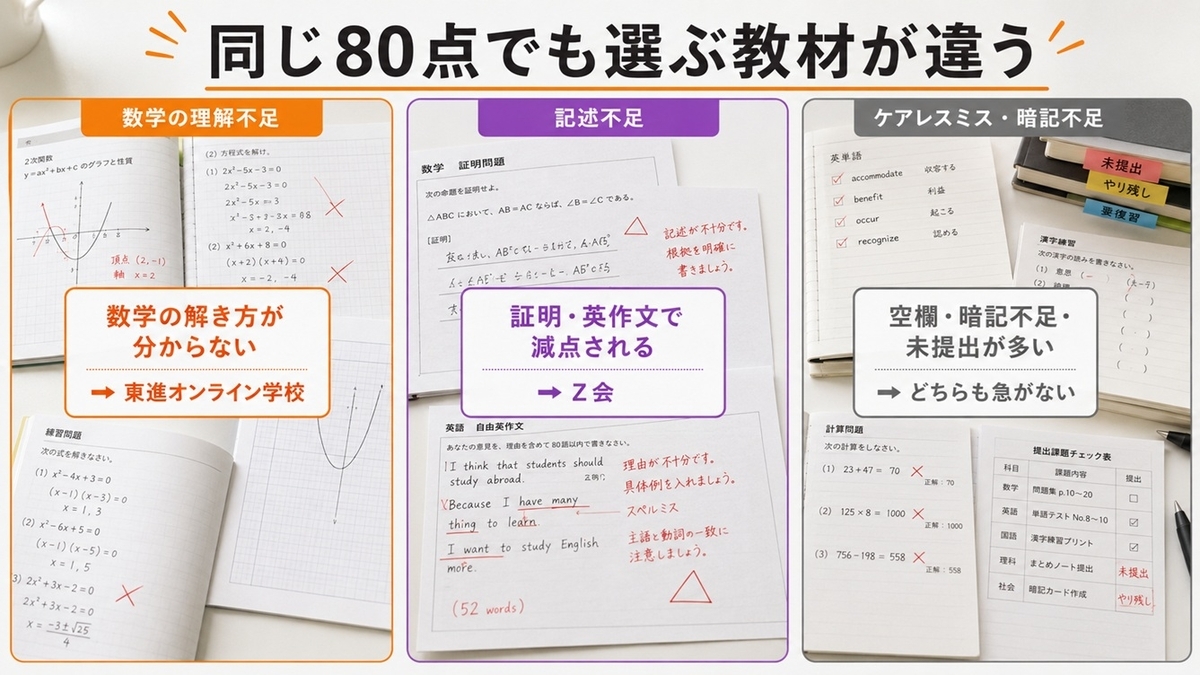 同じ80点でも選ぶ教材が違う
数学の理解不足
2次関数
y=ax²+bx+c のグラフと性質
頂点 (2,-1)
軸 x=2
(2) 方程式を解け。
(1) 2x²-5x-3=0
2x²-5x-3=0
2x²-5x=3
x=2, -4
(2) x²+6x+8=0
(x+2)(x+4)=0
x=-2, -4
数学の解き方が
分からない
➡ 東進オンライン学校
練習問題
次の式を解きなさい。
(1) x²-4x+3=0
(x-1)(x-3)=0
x=1, 3
(2) x²-6x+5=0
(x-1)(x-5)=0
x=1, 5
3) 2x²+3x-2=0
2x²+3x-2=0
x= -3±√25
4
記述不足
数学 証明問題
次の命題を証明せよ。
△ABC において、AB=AC ならば、∠B=∠C である。
[証明]
記述が不十分です。
根拠を明確に
書きましょう。
証明・英作文で
減点される
➡ Z会
英語 自由英作文
あなたの意見を、理由を含めて80語以内で書きなさい。
I think that students should
study abroad.
Because I have many
thing to learn.
I want to study English
more.
(52 words)
理由が不十分です。
具体例を入れましょう。
スペルミス
主語と動詞の一致に
注意しましょう。
ケアレスミス・暗記不足
英単語
accommodate 収容する
benefit 利益
occur 起こる
recognize 認める
未提出
やり残し
要復習
漢字練習
次の漢字の読みを書きなさい。
(1) 意思
(2)
空欄・暗記不足・
未提出が多い
➡ どちらも急がない
計算問題
次の計算をしなさい。
(1) 23+47= 70
正解:70
(2) 125×8= 1000
正解:1000
(3) 756-198= 558
正解:558
提出課題チェック表
科目 課題内容 提出
数学 問題集 p.10~20
英語 単語テスト No.8~10
国語 漢字練習プリント
理科 まとめノート提出 未提出
社会 暗記カード作成 やり残し